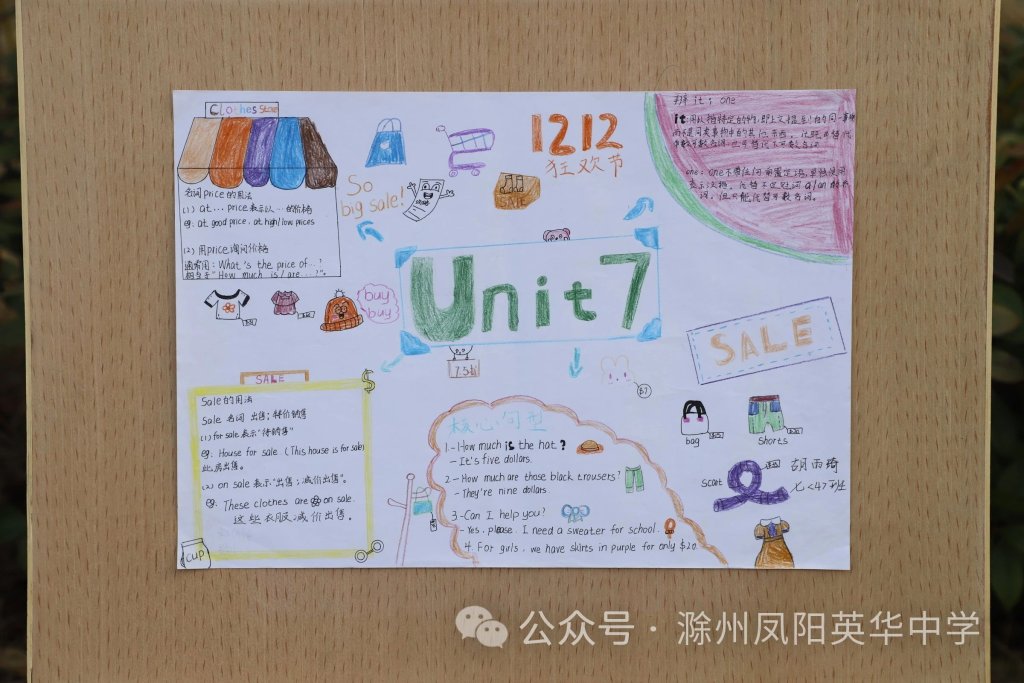 Clothes Store
名词price的用法
(1) at … price 表示以…的价格
eg: at good price, at high/low prices
(2) 用price询问价格
通常用: What's the price of…?
相当于"How much is/are …?".
So
big sale!
SALE
1212
狂欢节
辩 it; one
one: one不带任何前置定语,单独使用
buy
buy
Unit 7
SALE
SALE
Sale的用法
Sale 名词 出售; 特价销售
(1) for sale 表示"待销售"
eg: House for sale (This house is for sale)
此房出售。
(2) on sale 表示"出售; 减价出售"。
eg: These clothes are on sale.
这些衣服减价出售。
CUP
$
$7
核心句型
1.-How much is the hat?
-It's five dollars.
2-How much are those black trousers?
-They're nine dollars
3-Can I help you?
-Yes, please. I need a sweater for school.
4. For girls, we have skirts in purple for only $20.
bag
shorts
scat
胡雨琦
七<47>班
公众号·滁州凤阳英华中学